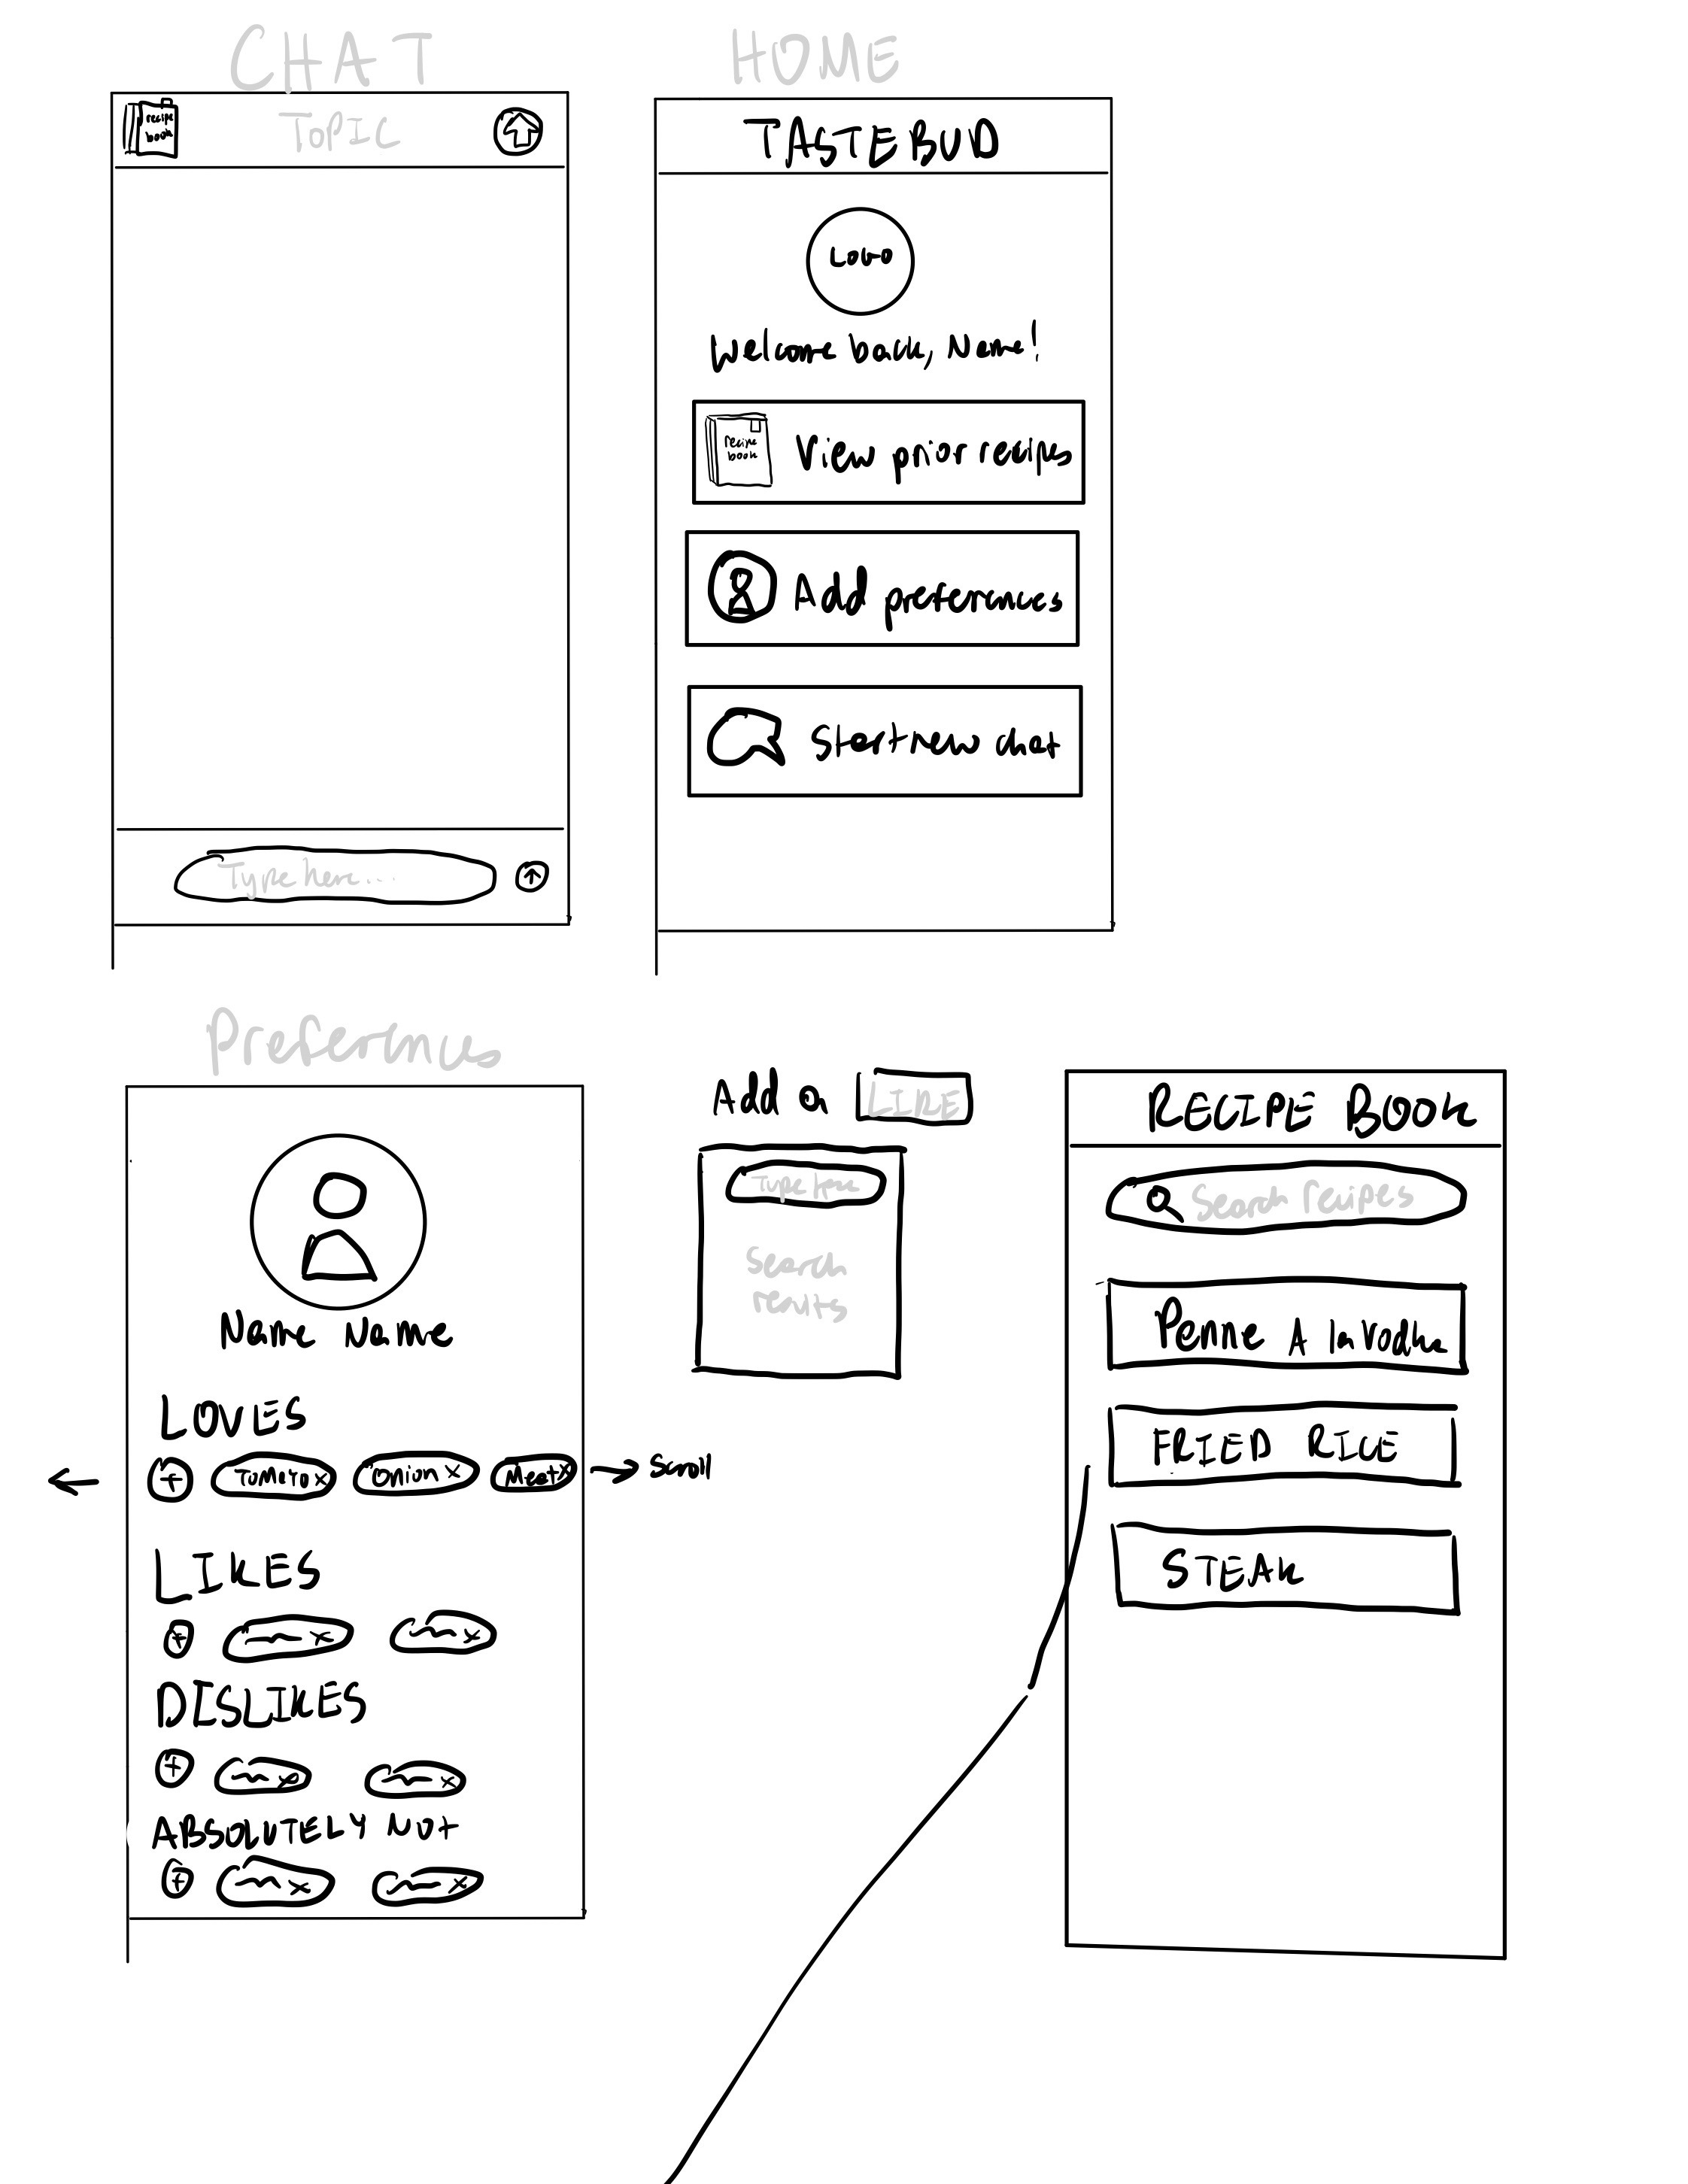 CHAT
recipe
book
TOPIC
Type here...
HOME
TASTEBUD
LOGO
Welcome back, Name!
recipe
book
View prior recipes
Add preferences
Start new chat
Preferences
Name Name
LOVES
+ Tomato x Onion x Meat x Scroll
LIKES
+ x x
DISLIKES
+ x x
ABSOLUTELY NOT
+ x x
Add a LIKE
Type here
Search
results
RECIPE BOOK
Search recipes
Penne A la vodka
FRIED RICE
STEAK